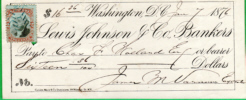 $16 56/100 Washington, D.C. Jan 7 1876
Lewis Johnson & Co. Bankers
Pay to Chas or bearer
Sixteen 56/100 Dollars
No.